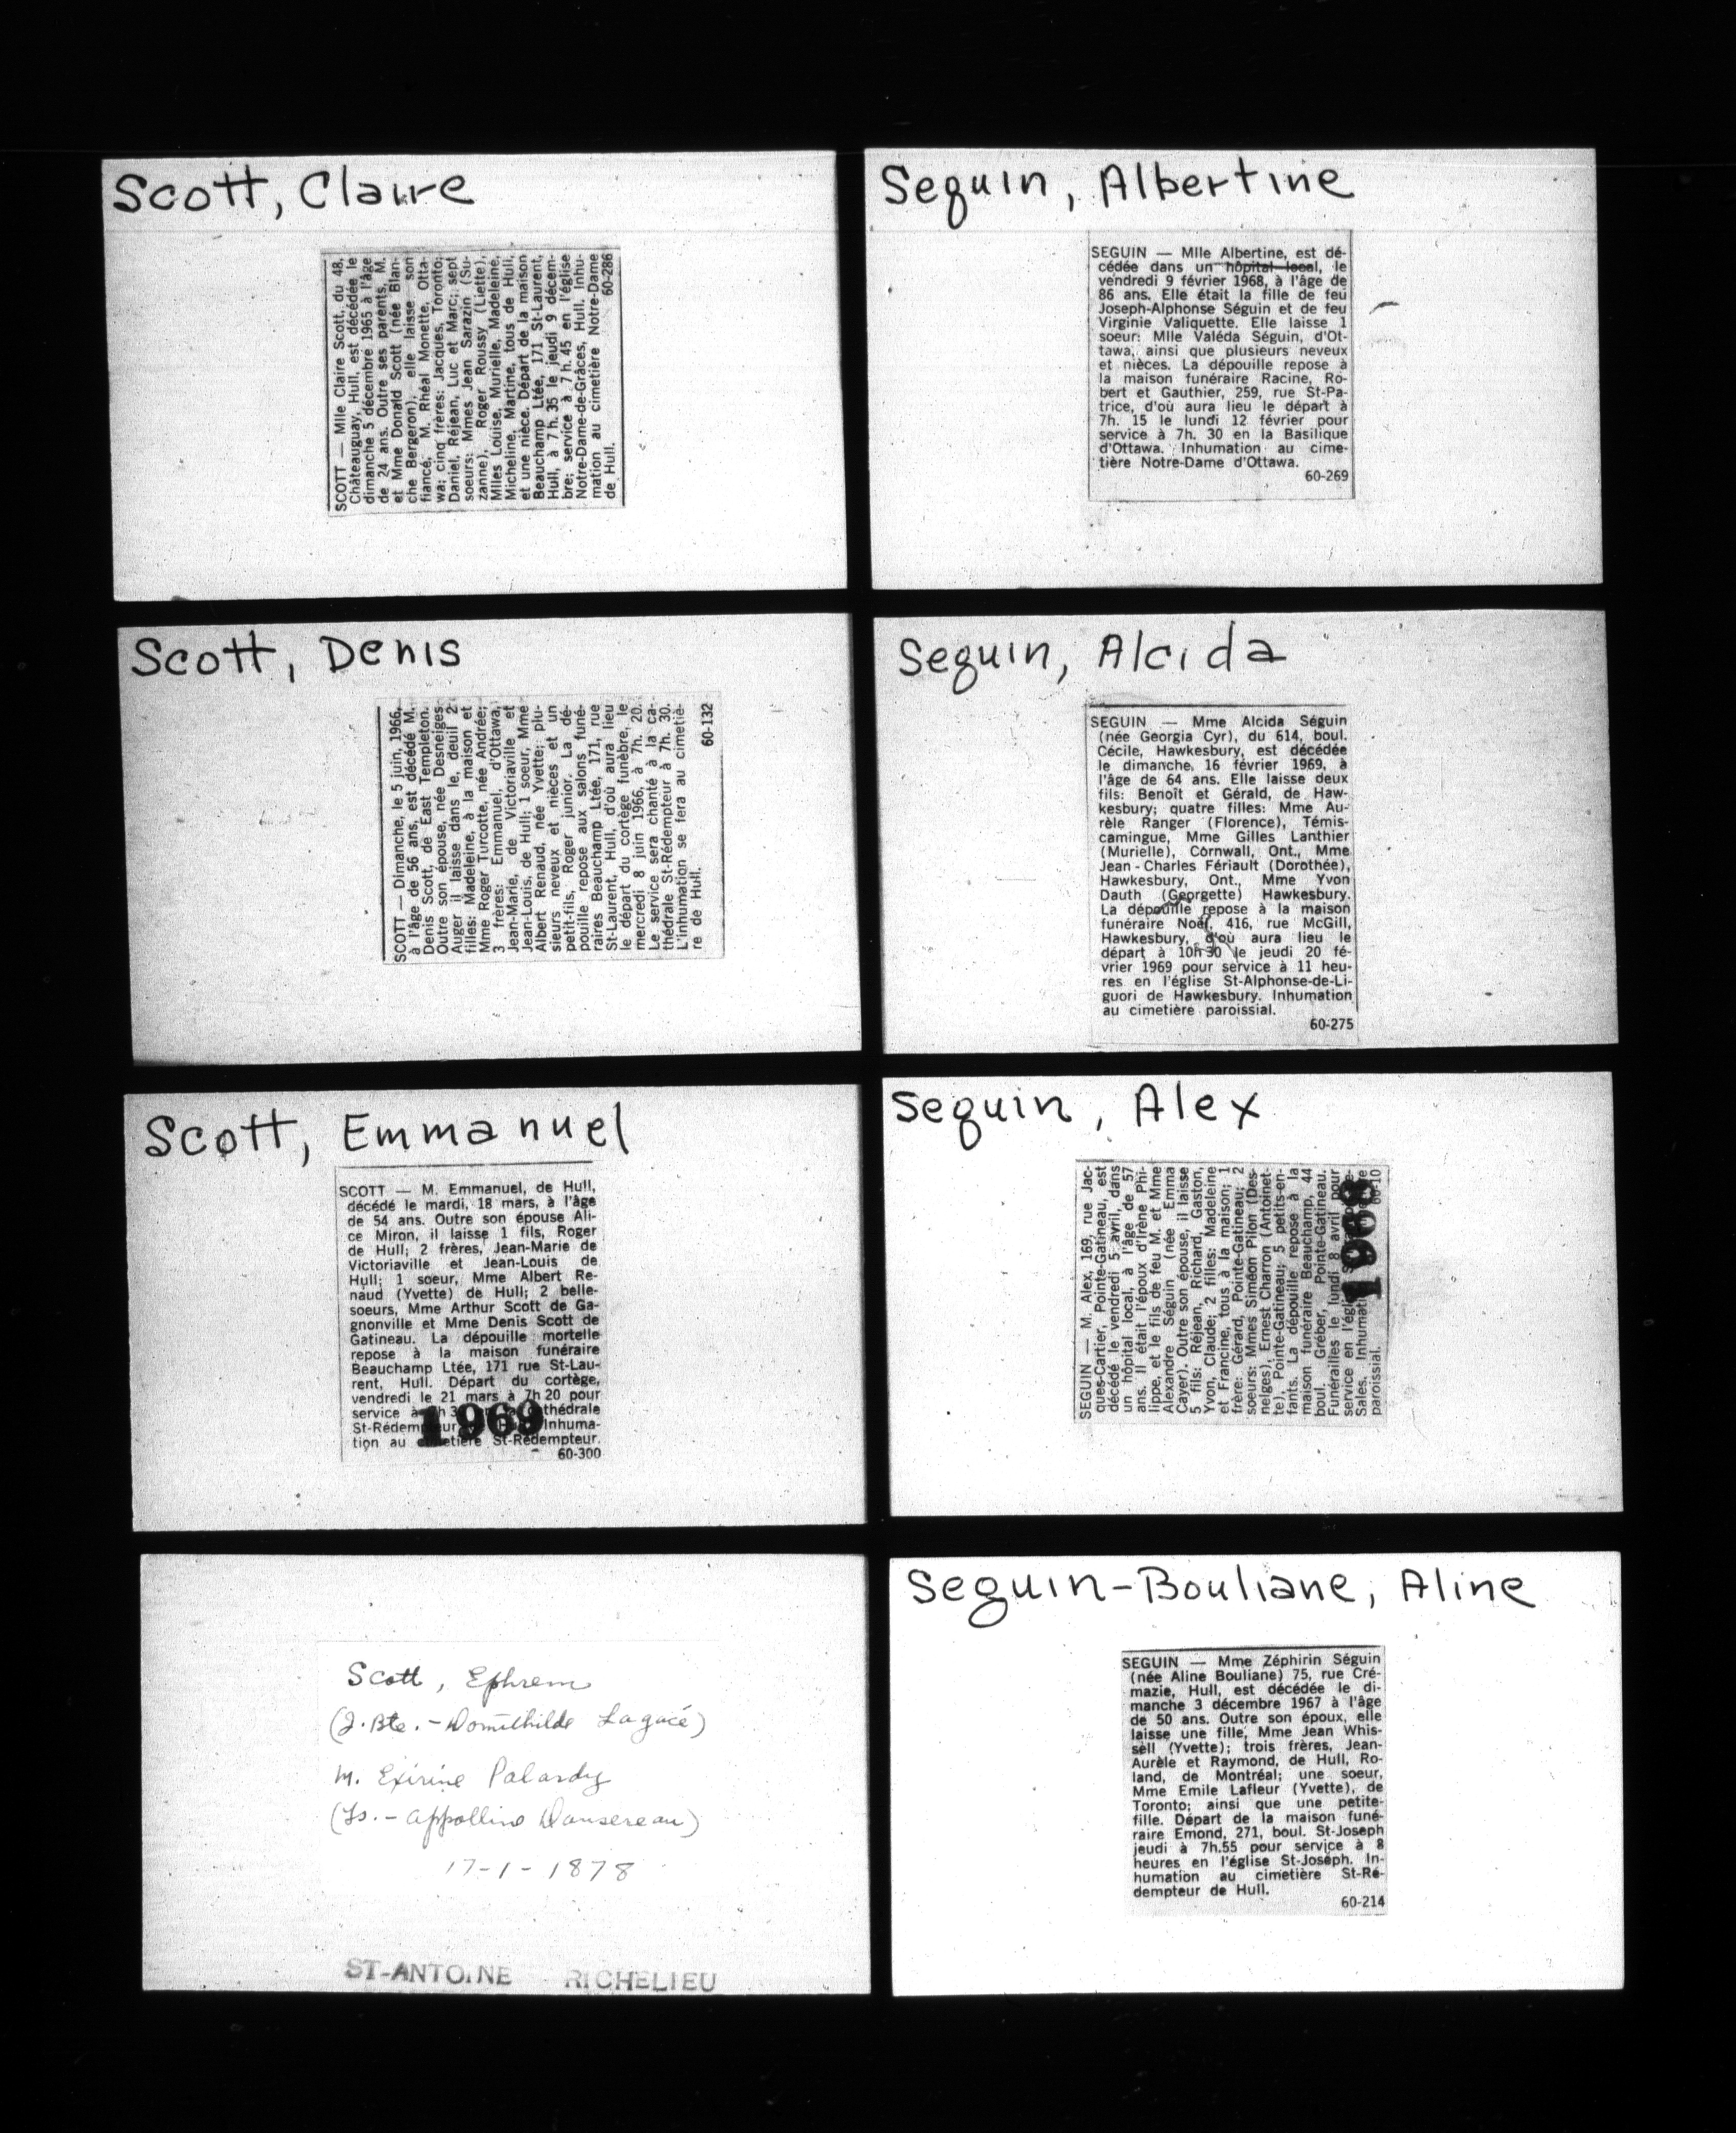 Scott, Claire
SCOTT — Mlle Claire Scott, du 48,
Châteauguay, Hull, est décédée le
dimanche 5 décembre 1965 à l'âge
de 24 ans. Outre ses parents, M.
et Mme Donald Scott (née Blan-
che Bergeron), elle laisse son
fiancé, M. Rhéal Monette, Otta-
wa; cinq frères: Jacques, Toronto;
Daniel, Réjean, Luc et Marc; sept
soeurs: Mmes Jean Sarazin (Su-
zanne), Roger Roussy (Liette),
Mlles Louise, Murielle, Madeleine,
Micheline, Martine, tous de Hull,
et une nièce. Départ de la maison
Beauchamp Ltée, 171 St-Laurent,
Hull, à 7h. 35 le jeudi 9 décem-
bre; service à 7h. 45 en l'église
Notre-Dame-de-Grâces, Hull. Inhu-
mation au cimetière Notre-Dame
de Hull.
60-286
Scott, Denis
SCOTT — Dimanche, le 5 juin, 1966,
à l'âge de 56 ans, est décédé M.
Denis Scott, de East Templeton.
Outre son épouse, née Desneiges
Auger il laisse dans le, deuil 2
filles: Madeleine, à la maison et
Mme Roger Turcotte, née Andrée;
3 frères: Emmanuel, d'Ottawa,
Jean-Marie, de Victoriaville et
Jean-Louis, de Hull; 1 soeur, Mme
Albert Renaud, née Yvette; plu-
sieurs neveux et nièces et un
petit-fils, Roger junior. La dé-
pouille repose aux salons funé-
raires Beauchamp Ltée, 171, rue
St-Laurent, Hull, d'où aura lieu
le départ du cortège funèbre, le
mercredi 8 juin 1966, à 7h. 20.
Le service sera chanté à la ca-
thédrale St-Rédempteur à 7h. 30.
L'inhumation se fera au cimetiè-
re de Hull.
60-132
Scott, Emmanuel
SCOTT — M. Emmanuel, de Hull,
décédé le mardi, 18 mars, à l'âge
de 54 ans. Outre son épouse Ali-
ce Miron, il laisse 1 fils, Roger
de Hull; 2 frères, Jean-Marie de
Victoriaville et Jean-Louis de
Hull; 1 soeur, Mme Albert Re-
naud (Yvette) de Hull; 2 belle-
soeurs, Mme Arthur Scott de Ga-
gnonville et Mme Denis Scott de
Gatineau. La dépouille mortelle
repose à la maison funéraire
Beauchamp Ltée, 171 rue St-Lau-
rent, Hull. Départ du cortège,
vendredi le 21 mars à 7h 20 pour
service à cathédrale
St-Rédempteur Inhuma-
tion au cimetière St-Rédempteur.
1969
60-300
Scott, Ephrem
(J. Bte. - Domithilde Lagacé)
m. Exirine Palardy
(Ls. - Appolline Dansereau)
17-1-1878
ST-ANTOINE RICHELIEU
Seguin, Albertine
SEGUIN — Mlle Albertine, est dé-
cédée dans un hôpital local, le
vendredi 9 février 1968, à l'âge de
86 ans. Elle était la fille de feu
Joseph-Alphonse Séguin et de feu
Virginie Valiquette. Elle laisse 1
soeur: Mlle Valéda Séguin, d'Ot-
tawa, ainsi que plusieurs neveux
et nièces. La dépouille repose à
la maison funéraire Racine, Ro-
bert et Gauthier, 259, rue St-Pa-
trice, d'où aura lieu le départ à
7h. 15 le lundi 12 février pour
service à 7h. 30 en la Basilique
d'Ottawa. Inhumation au cime-
tière Notre-Dame d'Ottawa.
60-269
Seguin, Alcida
SEGUIN — Mme Alcida Séguin
(née Georgia Cyr), du 614, boul.
Cécile, Hawkesbury, est décédée
le dimanche, 16 février 1969, à
l'âge de 64 ans. Elle laisse deux
fils: Benoît et Gérald, de Haw-
kesbury; quatre filles: Mme Au-
rèle Ranger (Florence), Témis-
camingue, Mme Gilles Lanthier
(Murielle), Cornwall, Ont., Mme
Jean-Charles Fériault (Dorothée),
Hawkesbury, Ont., Mme Yvon
Dauth (Georgette) Hawkesbury.
La dépouille repose à la maison
funéraire Noël, 416, rue McGill,
Hawkesbury, d'où aura lieu le
départ à 10h 30 le jeudi 20 fé-
vrier 1969 pour service à 11 heu-
res en l'église St-Alphonse-de-Li-
guori de Hawkesbury. Inhumation
au cimetière paroissial.
60-275
Seguin, Alex
SEGUIN — M. Alex, 169, rue Jac-
ques-Cartier, Pointe-Gatineau, est
décédé le vendredi 5 avril, dans
un hôpital local, à l'âge de 57
ans. Il était l'époux d'Irène Phi-
lippe, et le fils de feu M. et Mme
Alexandre Séguin (née Emma
Cayer). Outre son épouse, il laisse
5 fils: Réjean, Richard, Gaston,
Yvon, Claude; 2 filles: Madeleine
et Francine, tous à la maison; 1
frère: Gérard, Pointe-Gatineau; 2
soeurs: Mmes Siméon Pilon (Des-
neiges), Ernest Charron (Antoinet-
te), Pointe-Gatineau; 5 petits-en-
fants. La dépouille repose à la
maison funéraire Beauchamp, 44
boul. Gréber, Pointe-Gatineau.
Funérailles le lundi 8 avril pour
service en l'église
Sales. Inhumation
paroissial.
60-10
1968
Seguin-Bouliane, Aline
SEGUIN — Mme Zéphirin Séguin
(née Aline Bouliane) 75, rue Cré-
mazie, Hull, est décédée le di-
manche 3 décembre 1967 à l'âge
de 50 ans. Outre son époux, elle
laisse une fille, Mme Jean Whis-
sell (Yvette); trois frères, Jean-
Aurèle et Raymond, de Hull, Ro-
land, de Montréal; une soeur,
Mme Emile Lafleur (Yvette), de
Toronto; ainsi que une petite-
fille. Départ de la maison funé-
raire Emond, 271, boul. St-Joseph
jeudi à 7h.55 pour service à 8
heures en l'église St-Joseph. In-
humation au cimetière St-Ré-
dempteur de Hull.
60-214